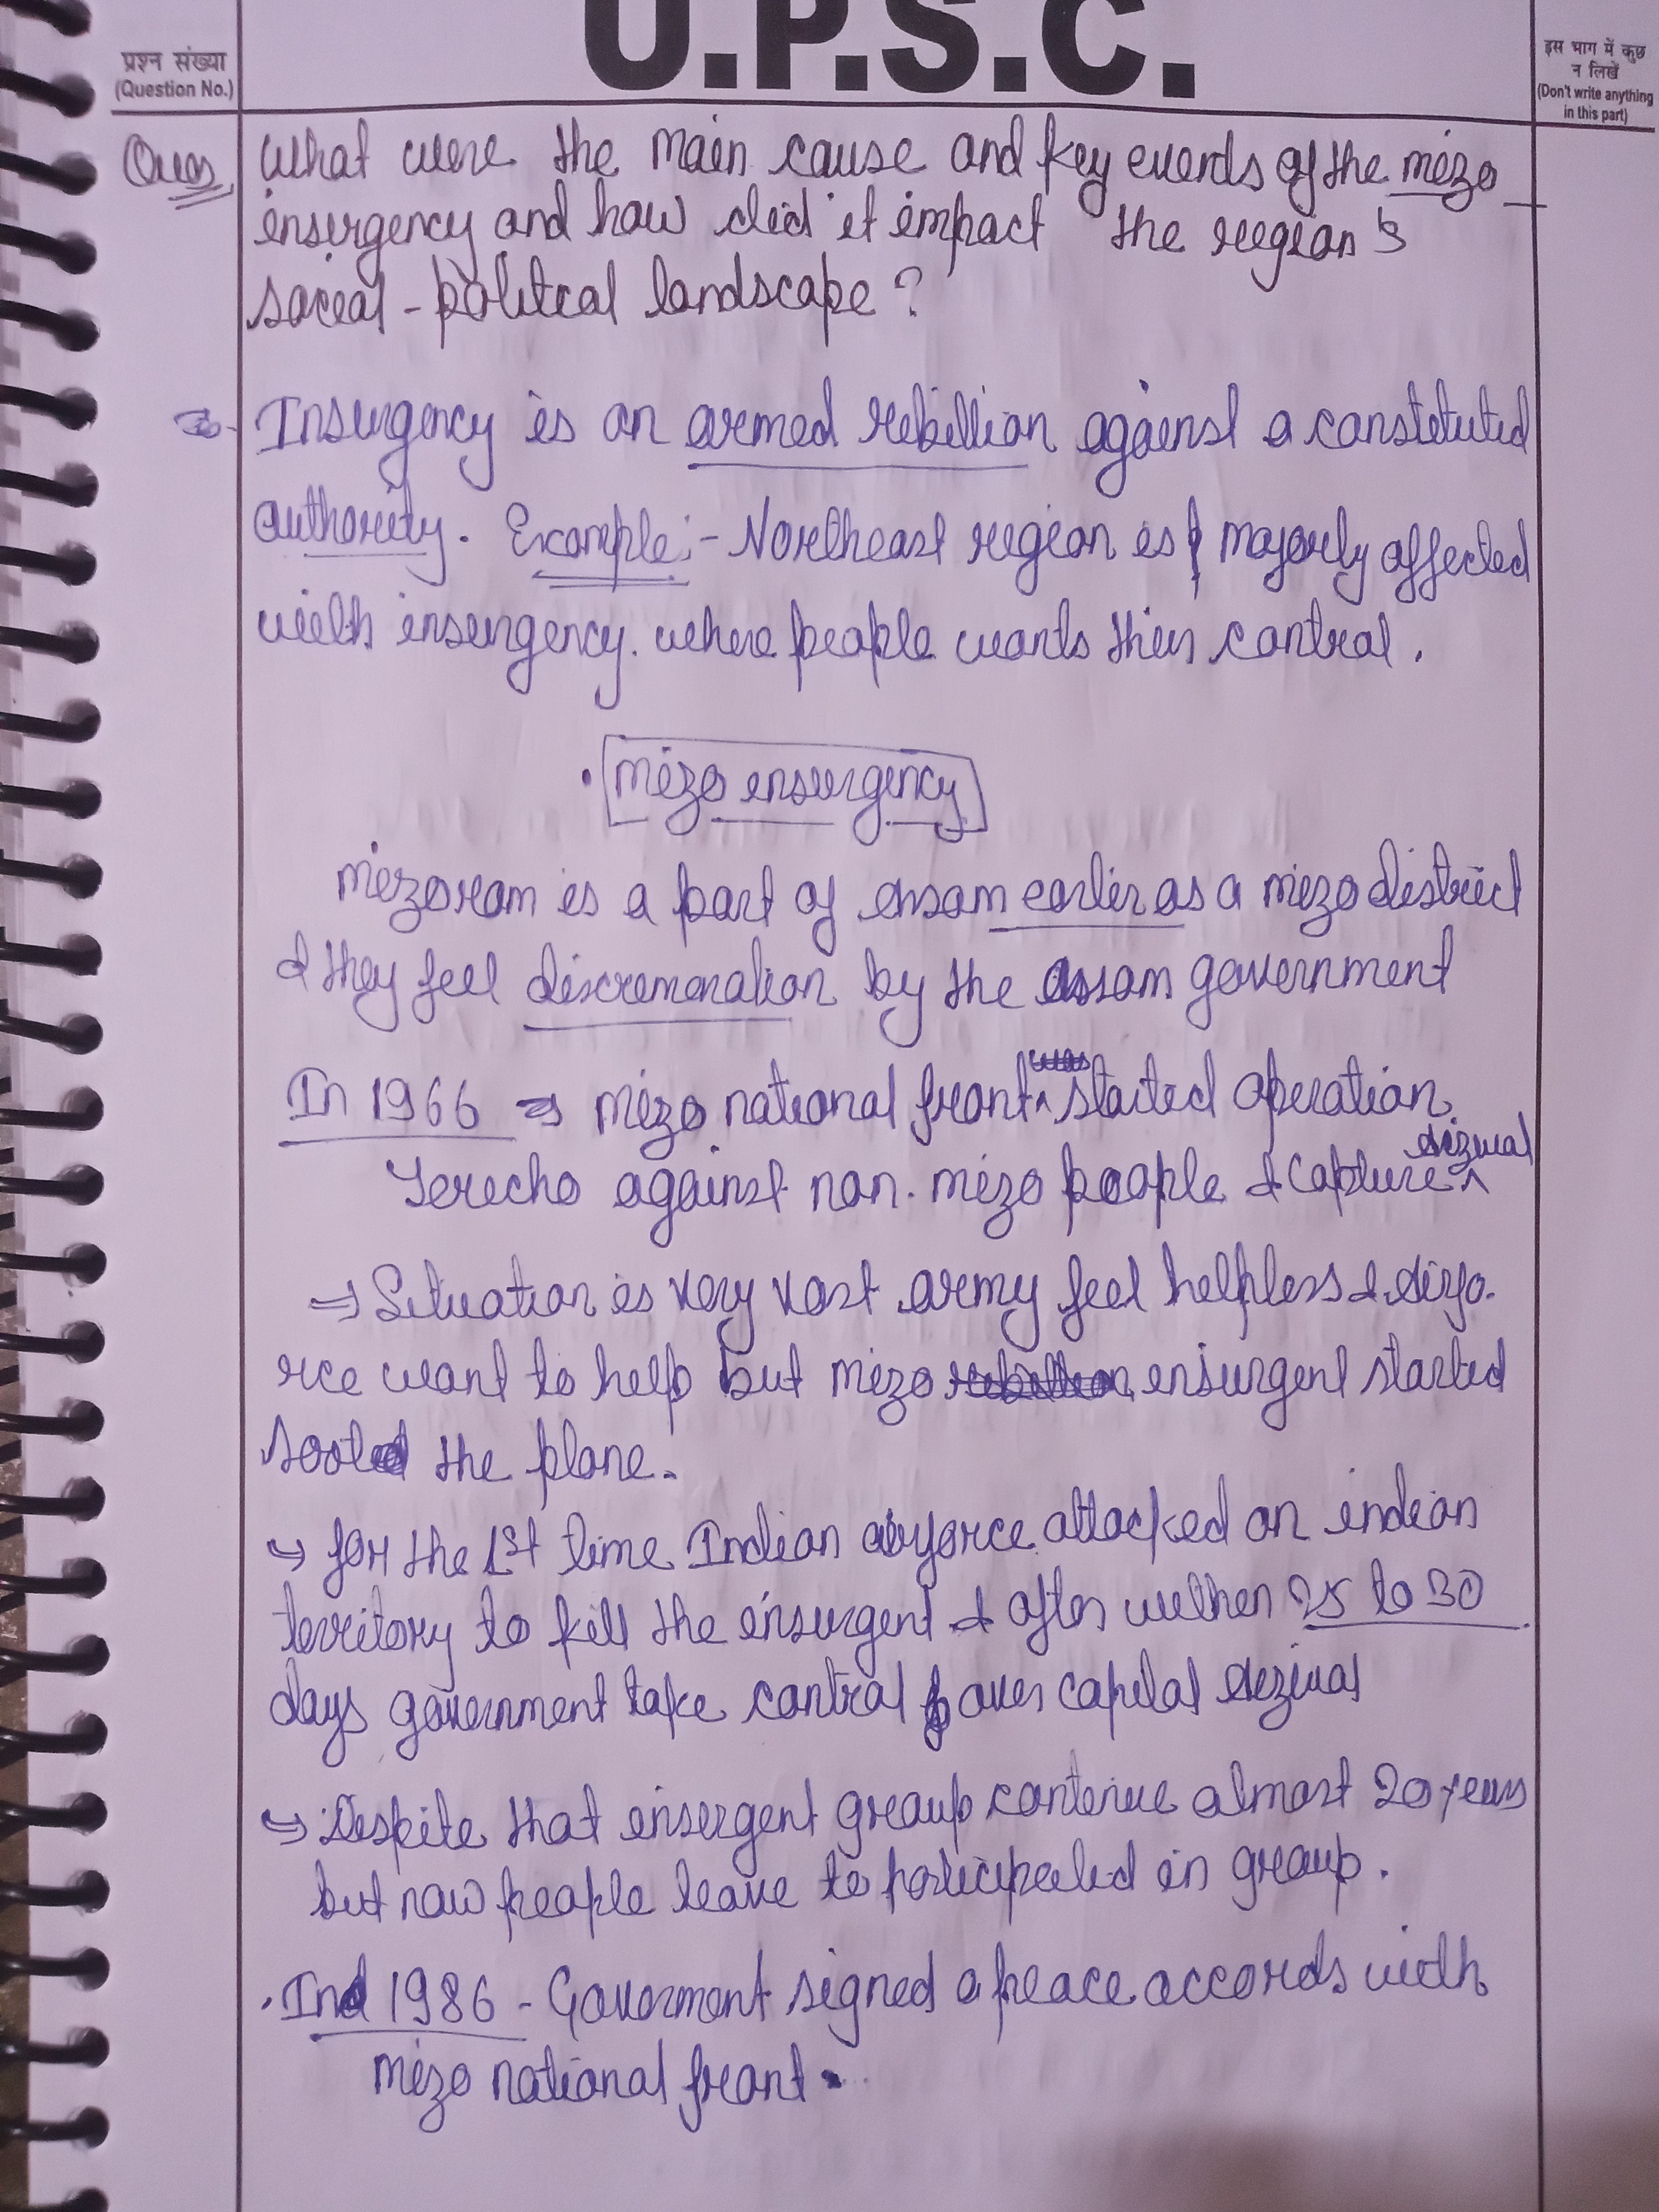 U.P.S.C.
प्रश्न संख्या
(Question No.)
इस भाग में कुछ
न लिखें
(Don't write anything
in this part)
Ques What were the main cause and key events of the mizo
insurgency and how did it impact the region's
social-political landscape?
Insurgency is an armed rebillion against a constituted
authority. Example:- Northeast region is majorly affected
with insurgency. where people wants their control.
• mizo insurgency
mizoram is a part of assam earlier as a mizo district
& they feel discrimination by the Assam government
In 1966 ⇒ mizo national front started operation
Jerecho against non-mizo people & capture Aizwal
⇒ Situation is very vast army feel helpless & airfo-
rce want to help but mizo insurgent started
soot the plane.
→ for the 1st time Indian airforce attacked on indian
territory to kill the insurgent & after within 25 to 30
days government take control over capital Aizwal
→ Despite that insurgent group continue almost 20 years
but now people leave to participated in group.
• In 1986 - Government signed a peace accords with
mizo national front.